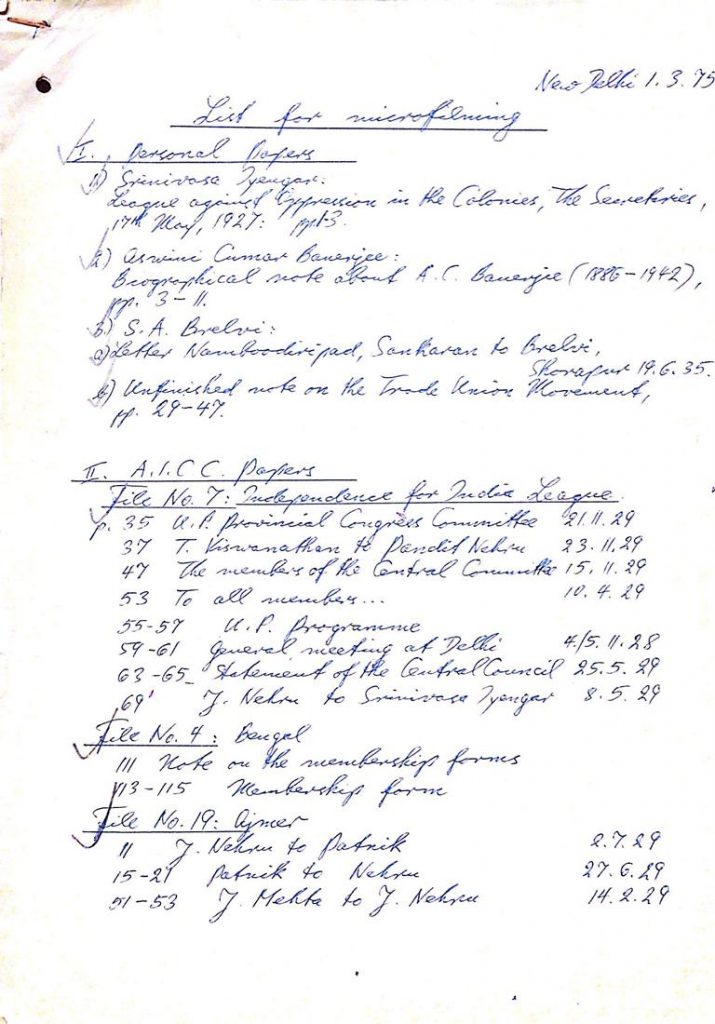 New Delhi 1.3.75
List for microfilming
I. Personal Papers
1) Srinivasa Iyengar:
League against Oppression in the Colonies, The Secretaries,
17th May, 1927: pp1-3.
2) Aswini Cumar Banerjee:
Biographical note about A.C. Banerjee (1886-1942),
pp. 3-11.
3) S.A. Brelvi:
a) Letter Namboodiripad, Sankaran to Brelvi,
Shorapur 19.6.35.
b) Unfinished note on the Trade Union Movement,
pp. 29-47.
II. A.I.C.C. Papers
File No. 7: Independence for India League
p. 35 U.P. Provincial Congress Committee 21.11.29
37 T. Viswanathan to Pandit Nehru 23.11.29
47 The members of the Central Committee 15.11.29
53 To all members... 10.4.29
55-57 U.P. Programme
59-61 General meeting at Delhi 4./5.11.28
63-65 Statement of the Central Council 25.5.29
69 J. Nehru to Srinivasa Iyengar 8.5.29
File No. 4: Bengal
111 Note on the membership forms
113-115 Membership form
File No. 19: Ajmer
11 J. Nehru to Patnik 2.7.29
15-21 Patnik to Nehru 27.6.29
51-53 J. Mehta to J. Nehru 14.2.29